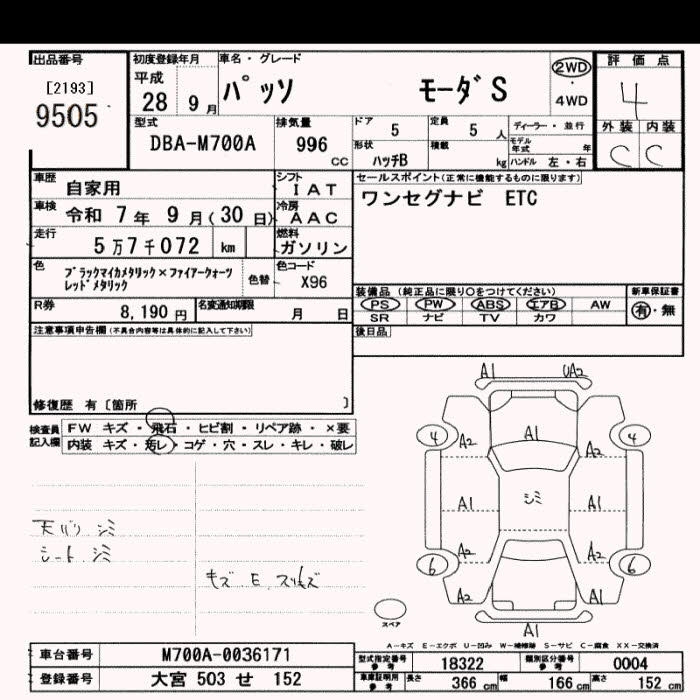 出品番号
[2193]
9505
初度登録年月
平成
28 9月
車名・グレード
パッソ モーダS
2WD
・
4WD
評価点
4
外装 内装
C C
型式
DBA-M700A
排気量
996 CC
ドア
5
定員
5 人
ディーラー・並行
形状
ハッチB
積載
kg
モデル年式 年
ハンドル 左・右
車歴
自家用
シフト
IAT
車検
令和 7年 9月(30日)
冷房
AAC
走行
5万7千072 km
燃料
ガソリン
色
ブラックマイカメタリック×ファイアークォーツ
レッドメタリック
色替
色コード
X96
R券
8,190 円
名変通知期限
月 日
セールスポイント(正常に機能するものに限ります)
ワンセグナビ ETC
装備品 (純正品に限り○をつけてください)
PS PW ABS エアB AW
SR ナビ TV カワ
新車保証書
有・無
後日品
注意事項申告欄(不具合内容等は具体的に記入して下さい)
修復歴 有〔箇所 〕
検査員記入欄
FW キズ・飛石・ヒビ割・リペア跡・×要
内装 キズ・汚レ・コゲ・穴・スレ・キレ・破レ
天バリ シミ
シート シミ
キズ E スリキズ
A1 UA2
4 A2 A1 A2 4
A1 シミ A1
A2 A2
6 6
A2 A1
スペア
A1
A-キズ E-エクボ U-凹み W-補修跡 S-サビ C-腐食 XX-交換済
車台番号
M700A-0036171
登録番号
大宮 503 せ 152
型式指定番号
参考
18322
類別区分番号
参考
0004
車庫証明用
参考
長さ 366 cm 幅 166 cm 高さ 152 cm